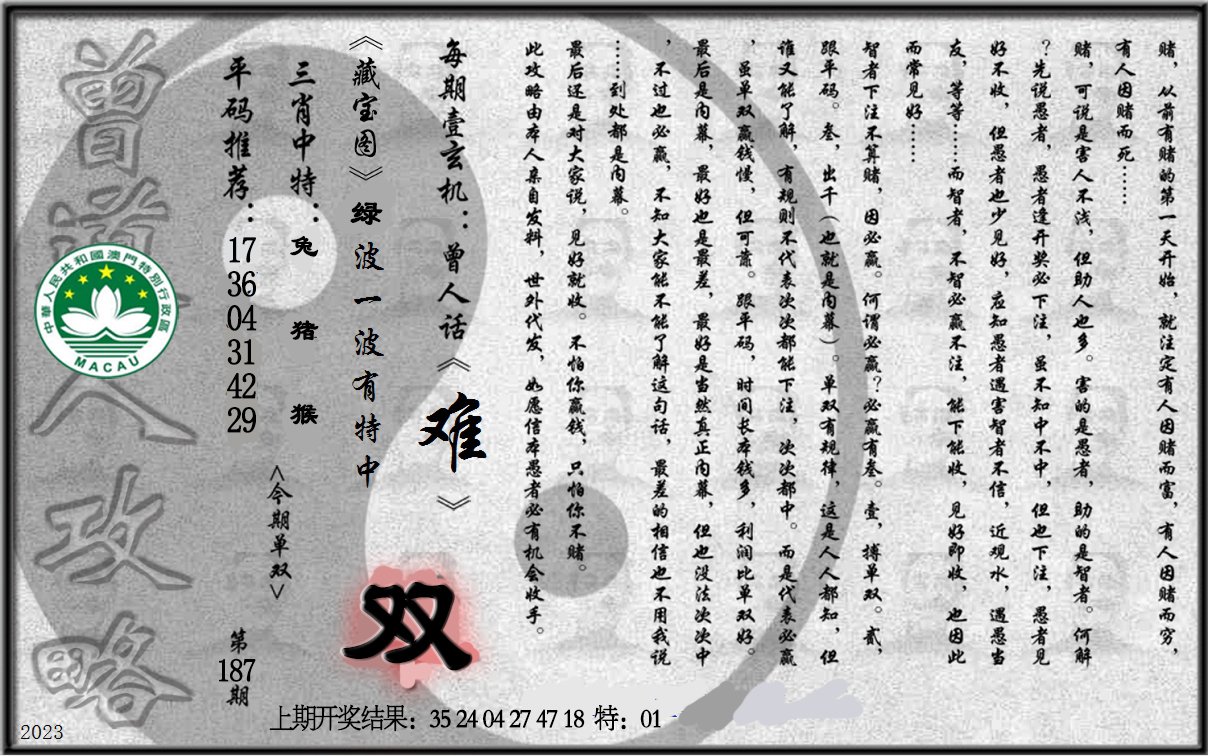 赌，从前有赌的第一天开始，就注定有人因赌而富，有人因赌而穷，
有人因赌而死……
赌，可说是害人不浅，但助人也多。害的是愚者，助的是智者。何解
？先说愚者，愚者逢开奖必下注，虽不知中不中，但也下注，愚者见
好不收，但愚者也少见好，应知愚者遇害智者不信，近观水，遇愚当
友，等等……而智者，不智必赢不注，能下能收，见好即收，也因此
而常见好……
智者下注不算赌，因必赢。何谓必赢？必赢有叁。壹，搏单双。贰，
跟平码。叁，出千（也就是内幕）。单双有规律，这是人人都知，但
谁又能了解，有规则不代表次次都能下注，次次都中。而是代表必赢
，虽单双赢钱慢，但可靠。跟平码，时间长本钱多，利润比单双好。
最后是内幕，最好也是最差，最好是当然真正内幕，但也没法次次中
，不过也必赢，不知大家能不能了解这句话，最差的相信也不用我说
……到处都是内幕。
最后还是对大家说，见好就收。不怕你赢钱，只怕你不赌。
此攻略由本人亲自发料，世外代发，如愿信本愚者必有机会收手。
每期壹玄机：曾人话《难》
《藏宝图》绿波一波有特中
双
三肖中特：兔 猪 猴
<今期单双>
平码推荐：17 36 04 31 42 29
第187期
曾道人攻略
中華人民共和國澳門特別行政區
MACAU
上期开奖结果：35 24 04 27 47 18 特：01
2023